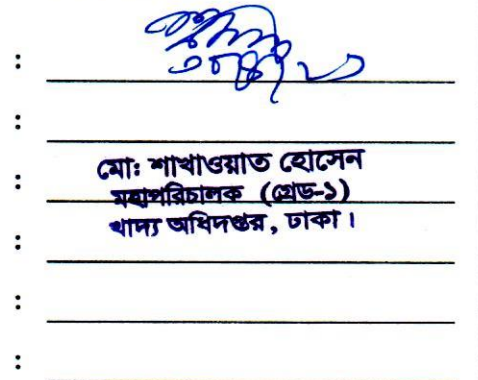 :
:
: মোঃ শাখাওয়াত হোসেন
মহাপরিচালক (গ্রেড-১)
খাদ্য অধিদপ্তর, ঢাকা।
:
:
: